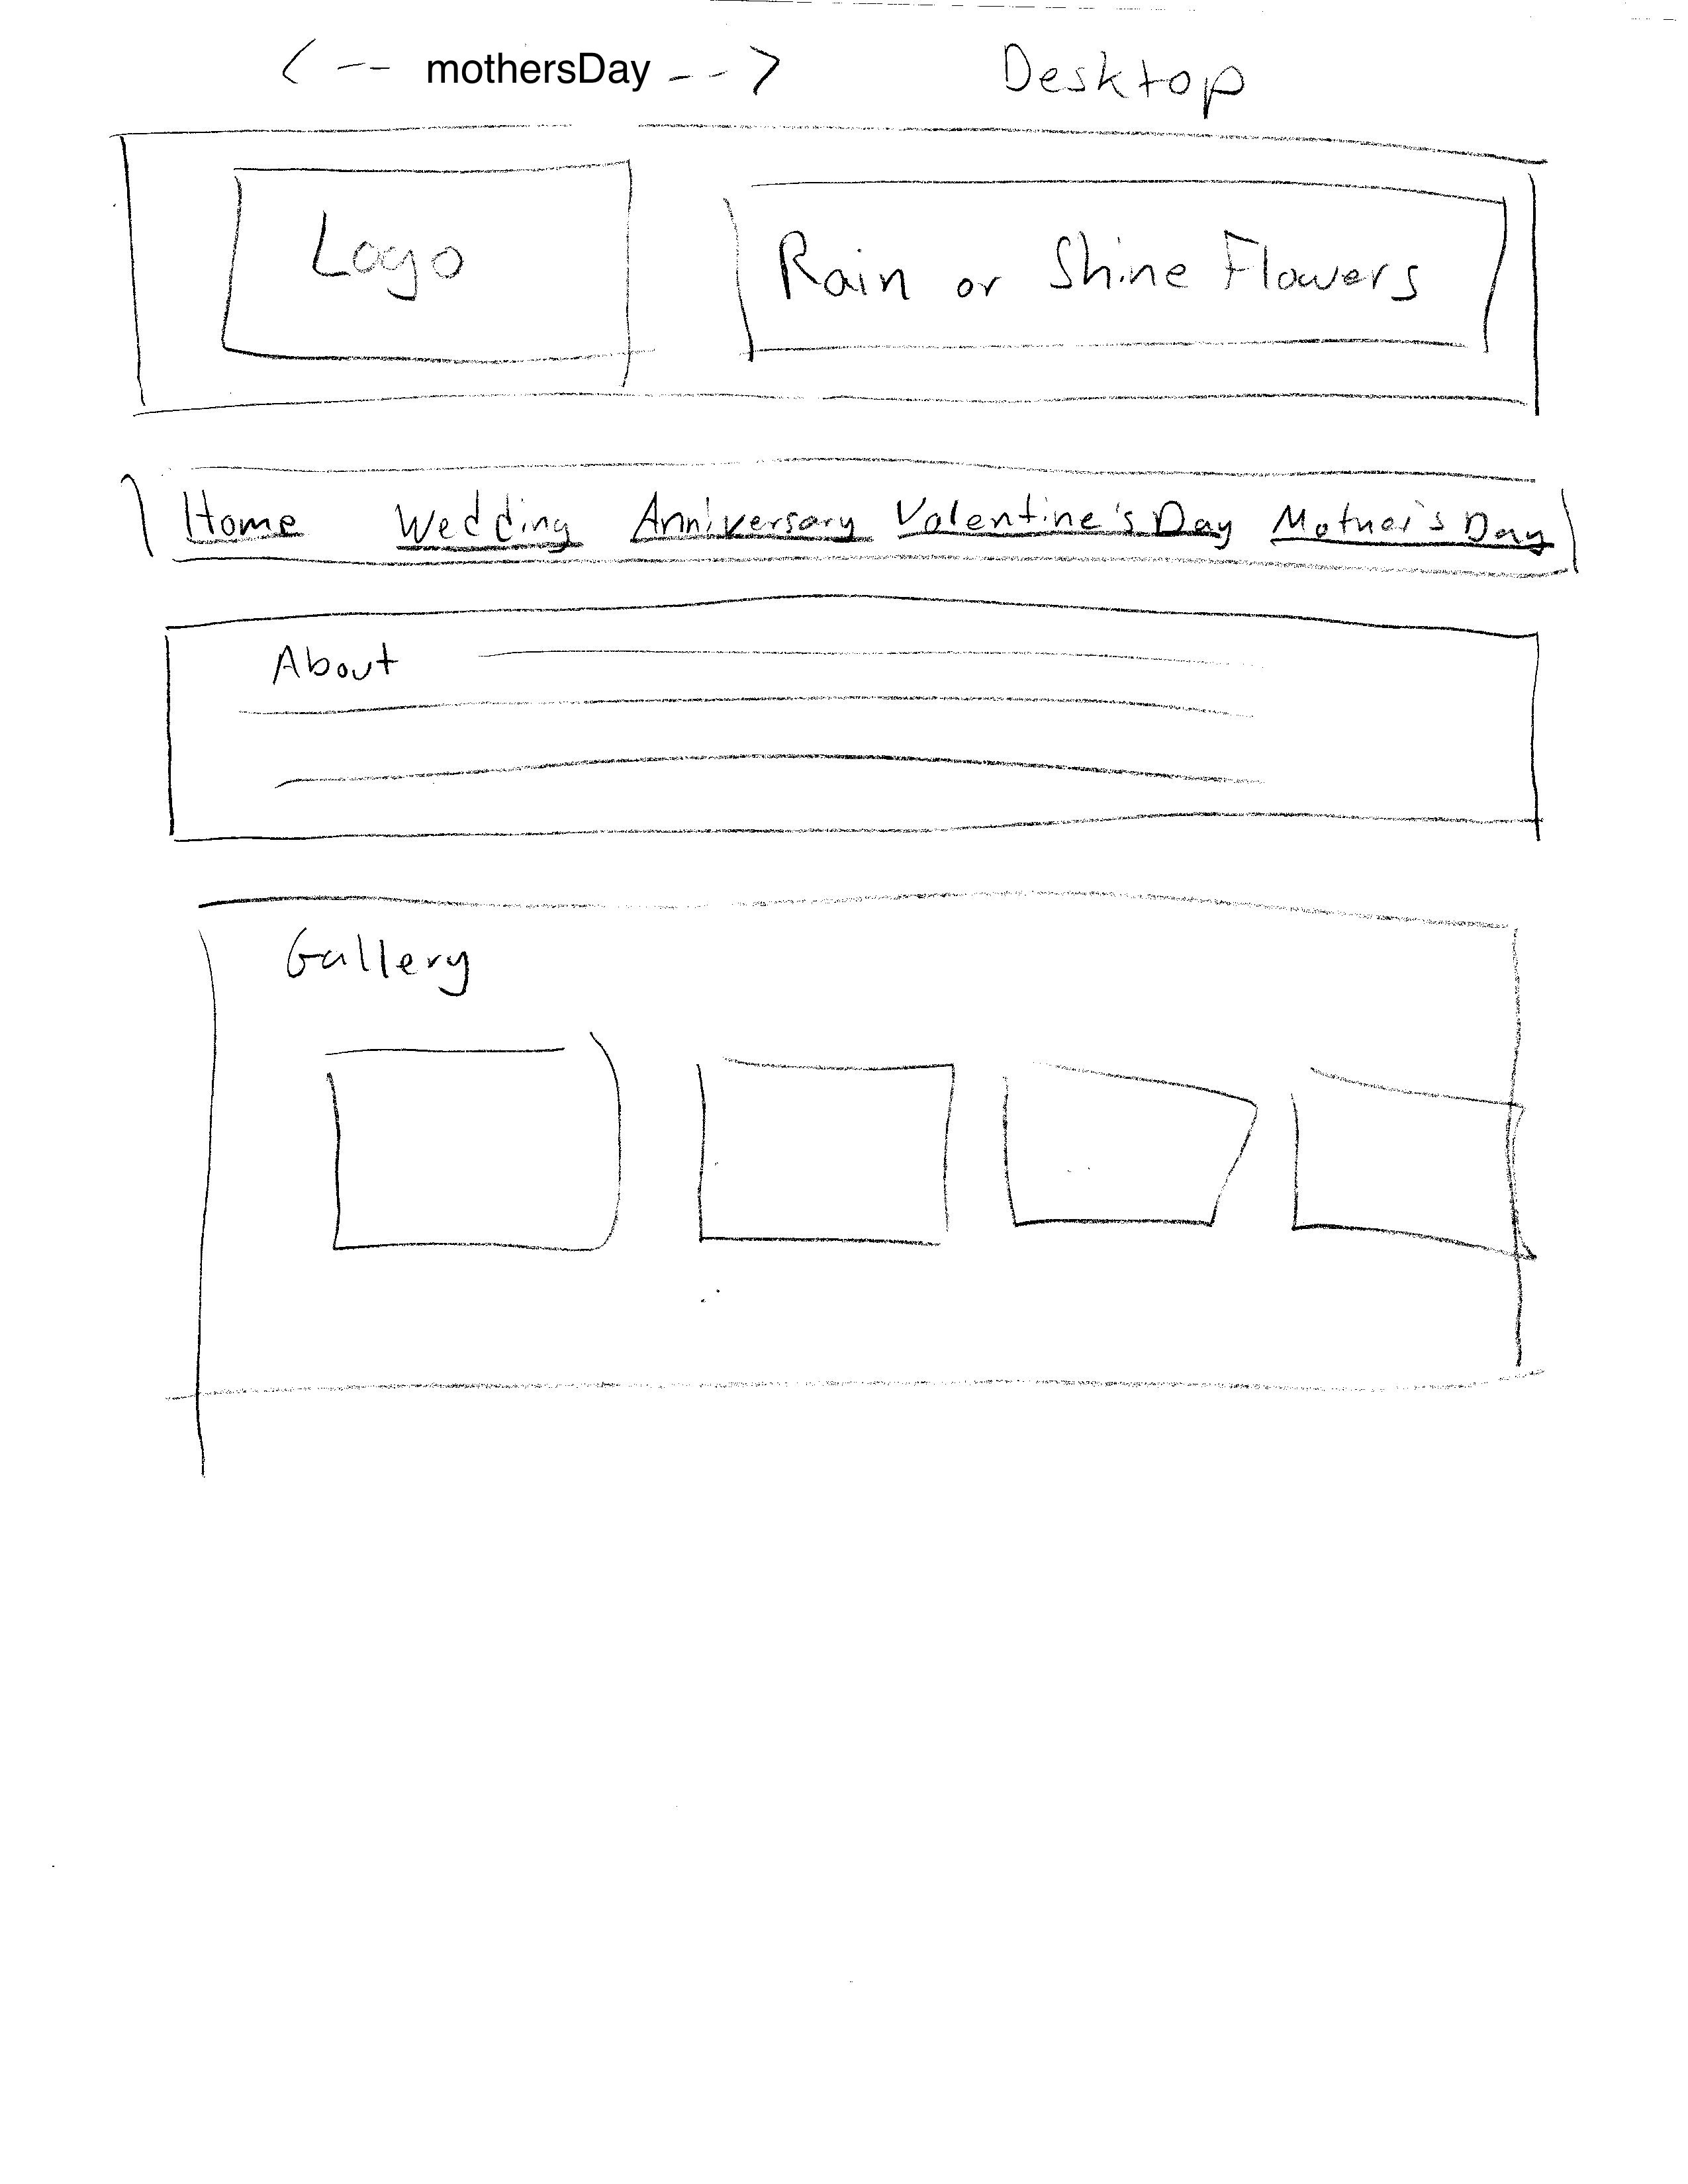 <-- mothersDay --> Desktop
Logo
Rain or Shine Flowers
Home Wedding Anniversary Valentine's Day Mother's Day
About
Gallery